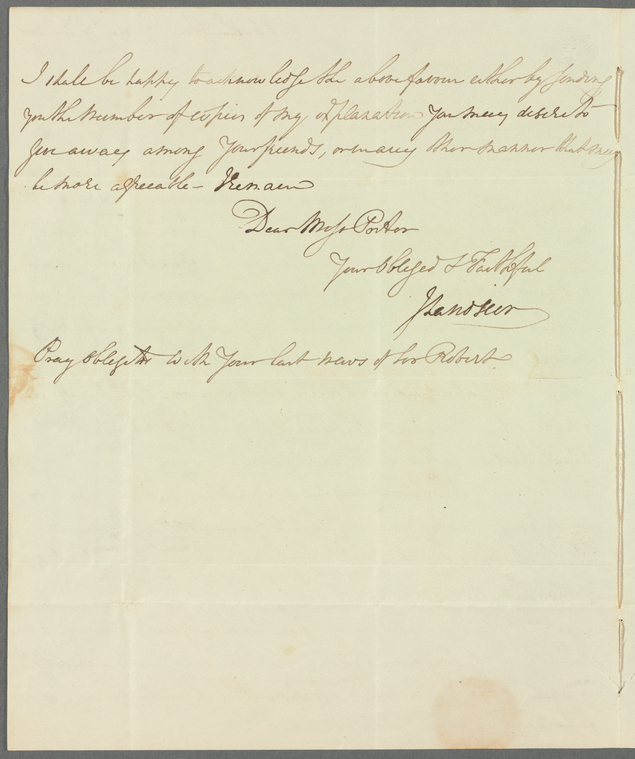 I shale be happy to acknowledge the above favour either by sending
you the Number of copies of my explanation you may desire to
give away among your friends, or in any other manner that may
be more agreeable – I remain
Dear Miss Porter
Your Obliged & Faithful
J Landseer
Pray oblige me with your last news of Sir Robert.